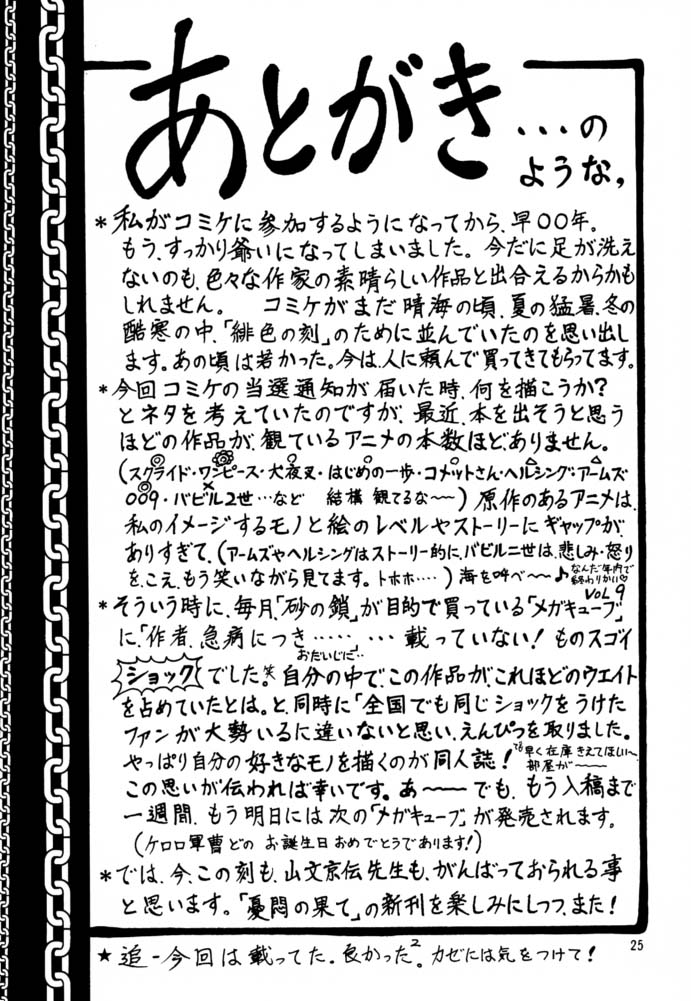 あとがき
…の
ような,
*私がコミケに参加するようになってから、早〇〇年。
もう、すっかり爺いになってしまいました。今だに足が洗え
ないのも、色々な作家の素晴らしい作品と出合えるからかも
しれません。 コミケがまだ晴海の頃、夏の猛暑、冬の
酷寒の中、「緋色の刻」のために並んでいたのを思い出し
ます。あの頃は若かった。今は、人に頼んで買ってきてもらってます。
*今回コミケの当選通知が届いた時、何を描こうか?
とネタを考えていたのですが、最近、本を出そうと思う
ほどの作品が、観ているアニメの本数ほど、ありません。
(スクライド・ワンピース・犬夜叉・はじめの一歩・コメットさん・ヘルシング・アームズ
009・バビル2世…など 結構観てるな〜〜)原作のあるアニメは、
私のイメージするモノと絵のレベルやストーリーにギャップが
ありすぎて、(アームズやヘルシングはストーリー的に、バビル二世は、悲しみ・怒り
を、こえ、もう笑いながら見てます。トホホ‥‥)海を呼べ〜〜♪
なんだ年内で
終わりかい♡
VOL9
*そういう時に、毎月「砂の鎖」が目的で買っている「メガキューブ」
に「作者、急病につき……」…載っていない!ものスゴイ
おだいじに‥
ショックでした。笑 自分の中で、この作品が、これほどのウエイト
を占めていたとは。と、同時に「全国でも同じショックをうけた
ファンが大勢いるに違いないと思い、えんぴつを取りました。
やっぱり自分の好きなモノを描くのが同人誌!
でも早く在庫きえてほしい〜
部屋が〜〜
この思いが伝われば幸いです。あ〜〜でも、もう入稿まで
一週間、もう明日には次の「メガキューブ」が発売されます。
(ケロロ軍曹どの お誕生日おめでとうであります!)
*では、今、この刻も、山文京伝先生も、がんばっておられる事
と思います。「憂悶の果て」の新刊を楽しみにしつつ、また!
★追-今回は載ってた。良かった2。カゼには気をつけて!
25